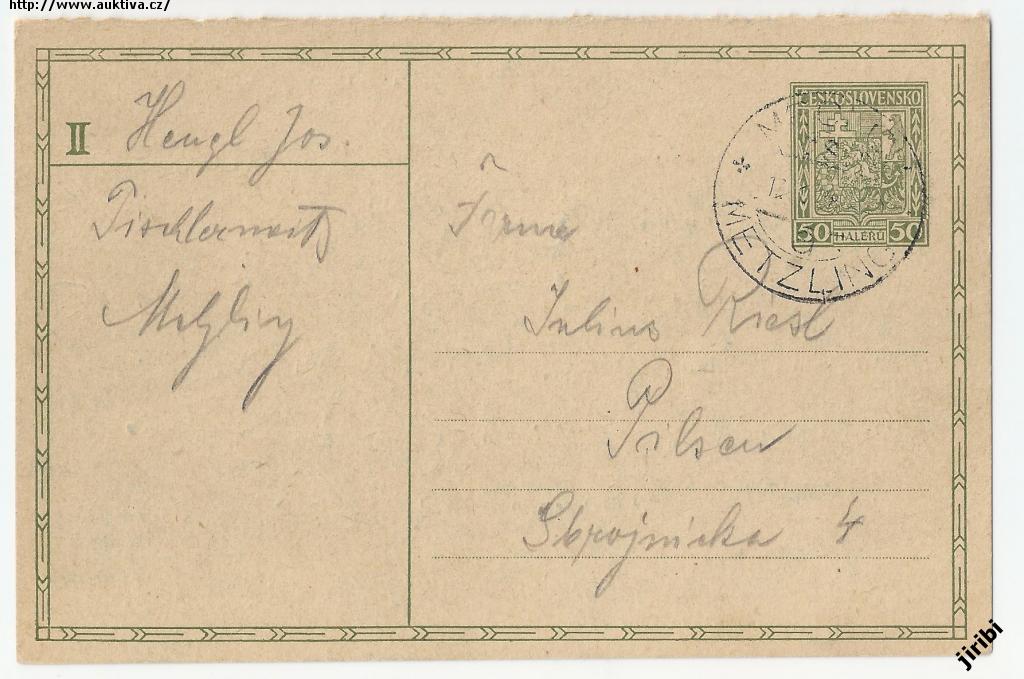 http://www.auktiva.cz/
II
Hengl Jos.
Tischlermeist
Metzling
ČESKOSLOVENSKO
50 HALÉŘŮ 50
METZLING
Firma
Julius Kresl
Pilsen
Sbrojnicka 4
jiribi